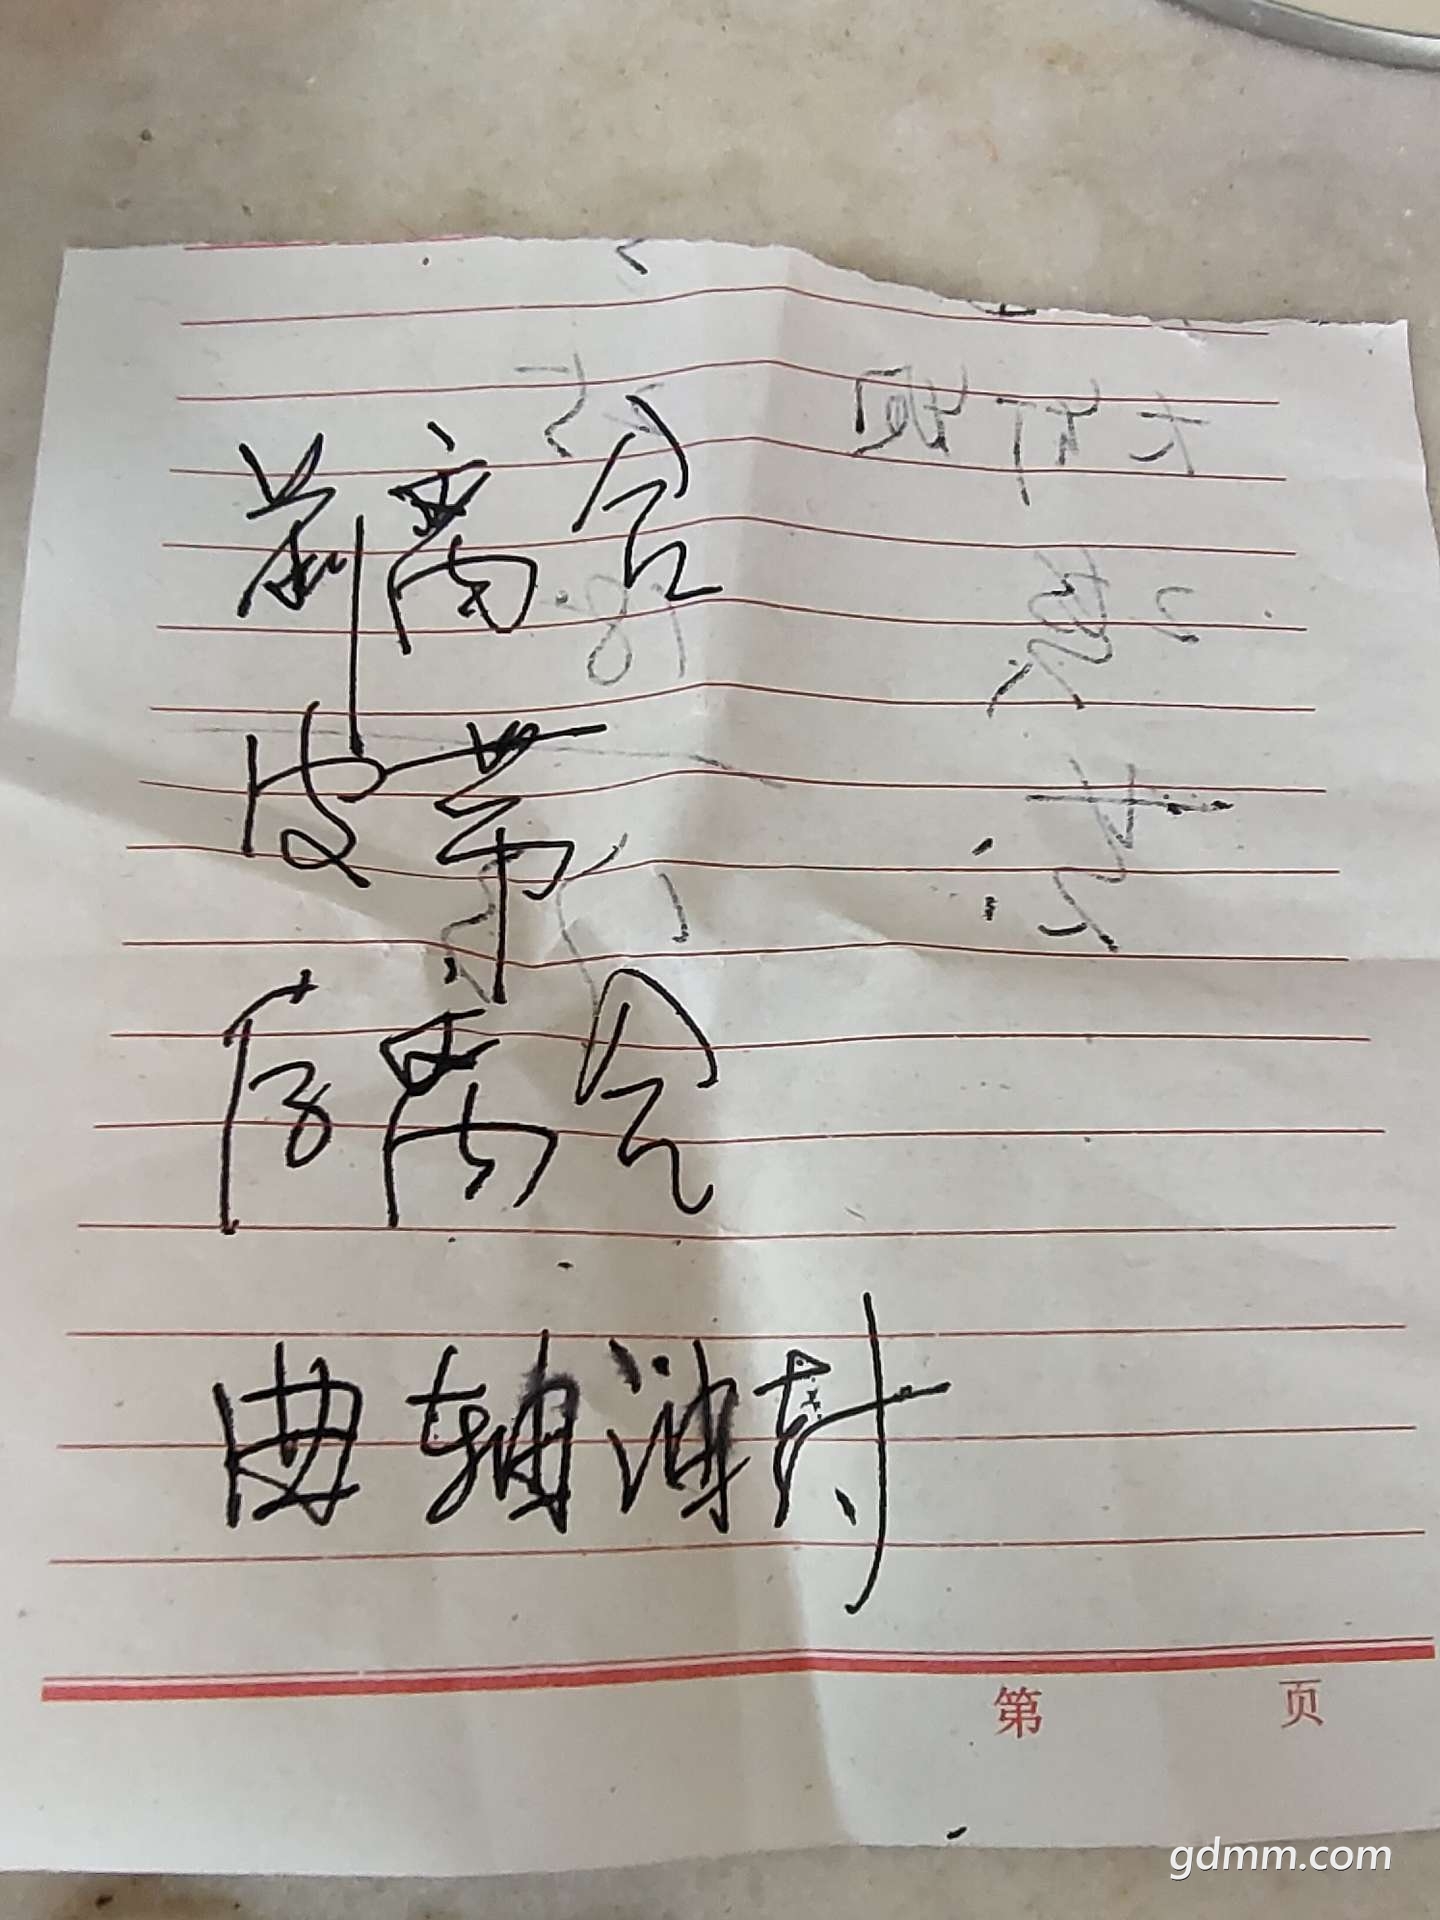 前离合
皮带
后离合
曲轴油封
第 页
gdmm.com